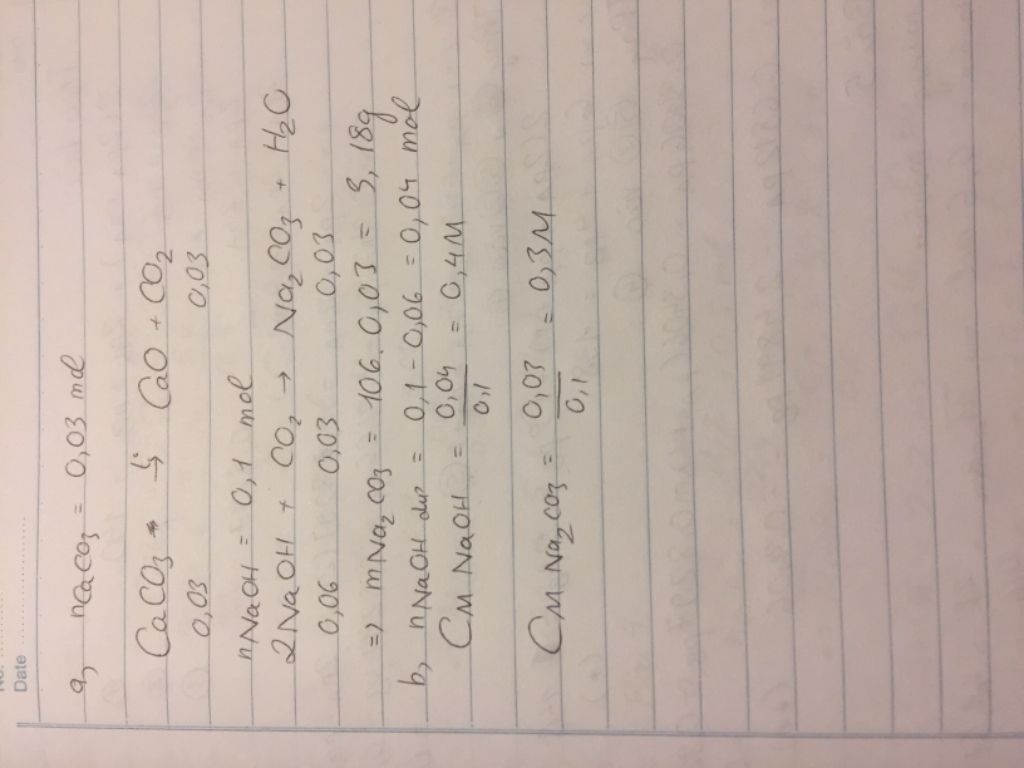 No.
Date
a, nCaCO3 = 0,03 mol
CaCO3 → CaO + CO2
0,03 0,03
nNaOH = 0,1 mol
2NaOH + CO2 → Na2CO3 + H2O
0,06 0,03 0,03
=> mNa2CO3 = 106.0,03 = 3,18g
b, nNaOH dư = 0,1 - 0,06 = 0,04 mol
CM NaOH = 0,04 / 0,1 = 0,4M
CM Na2CO3 = 0,03 / 0,1 = 0,3M